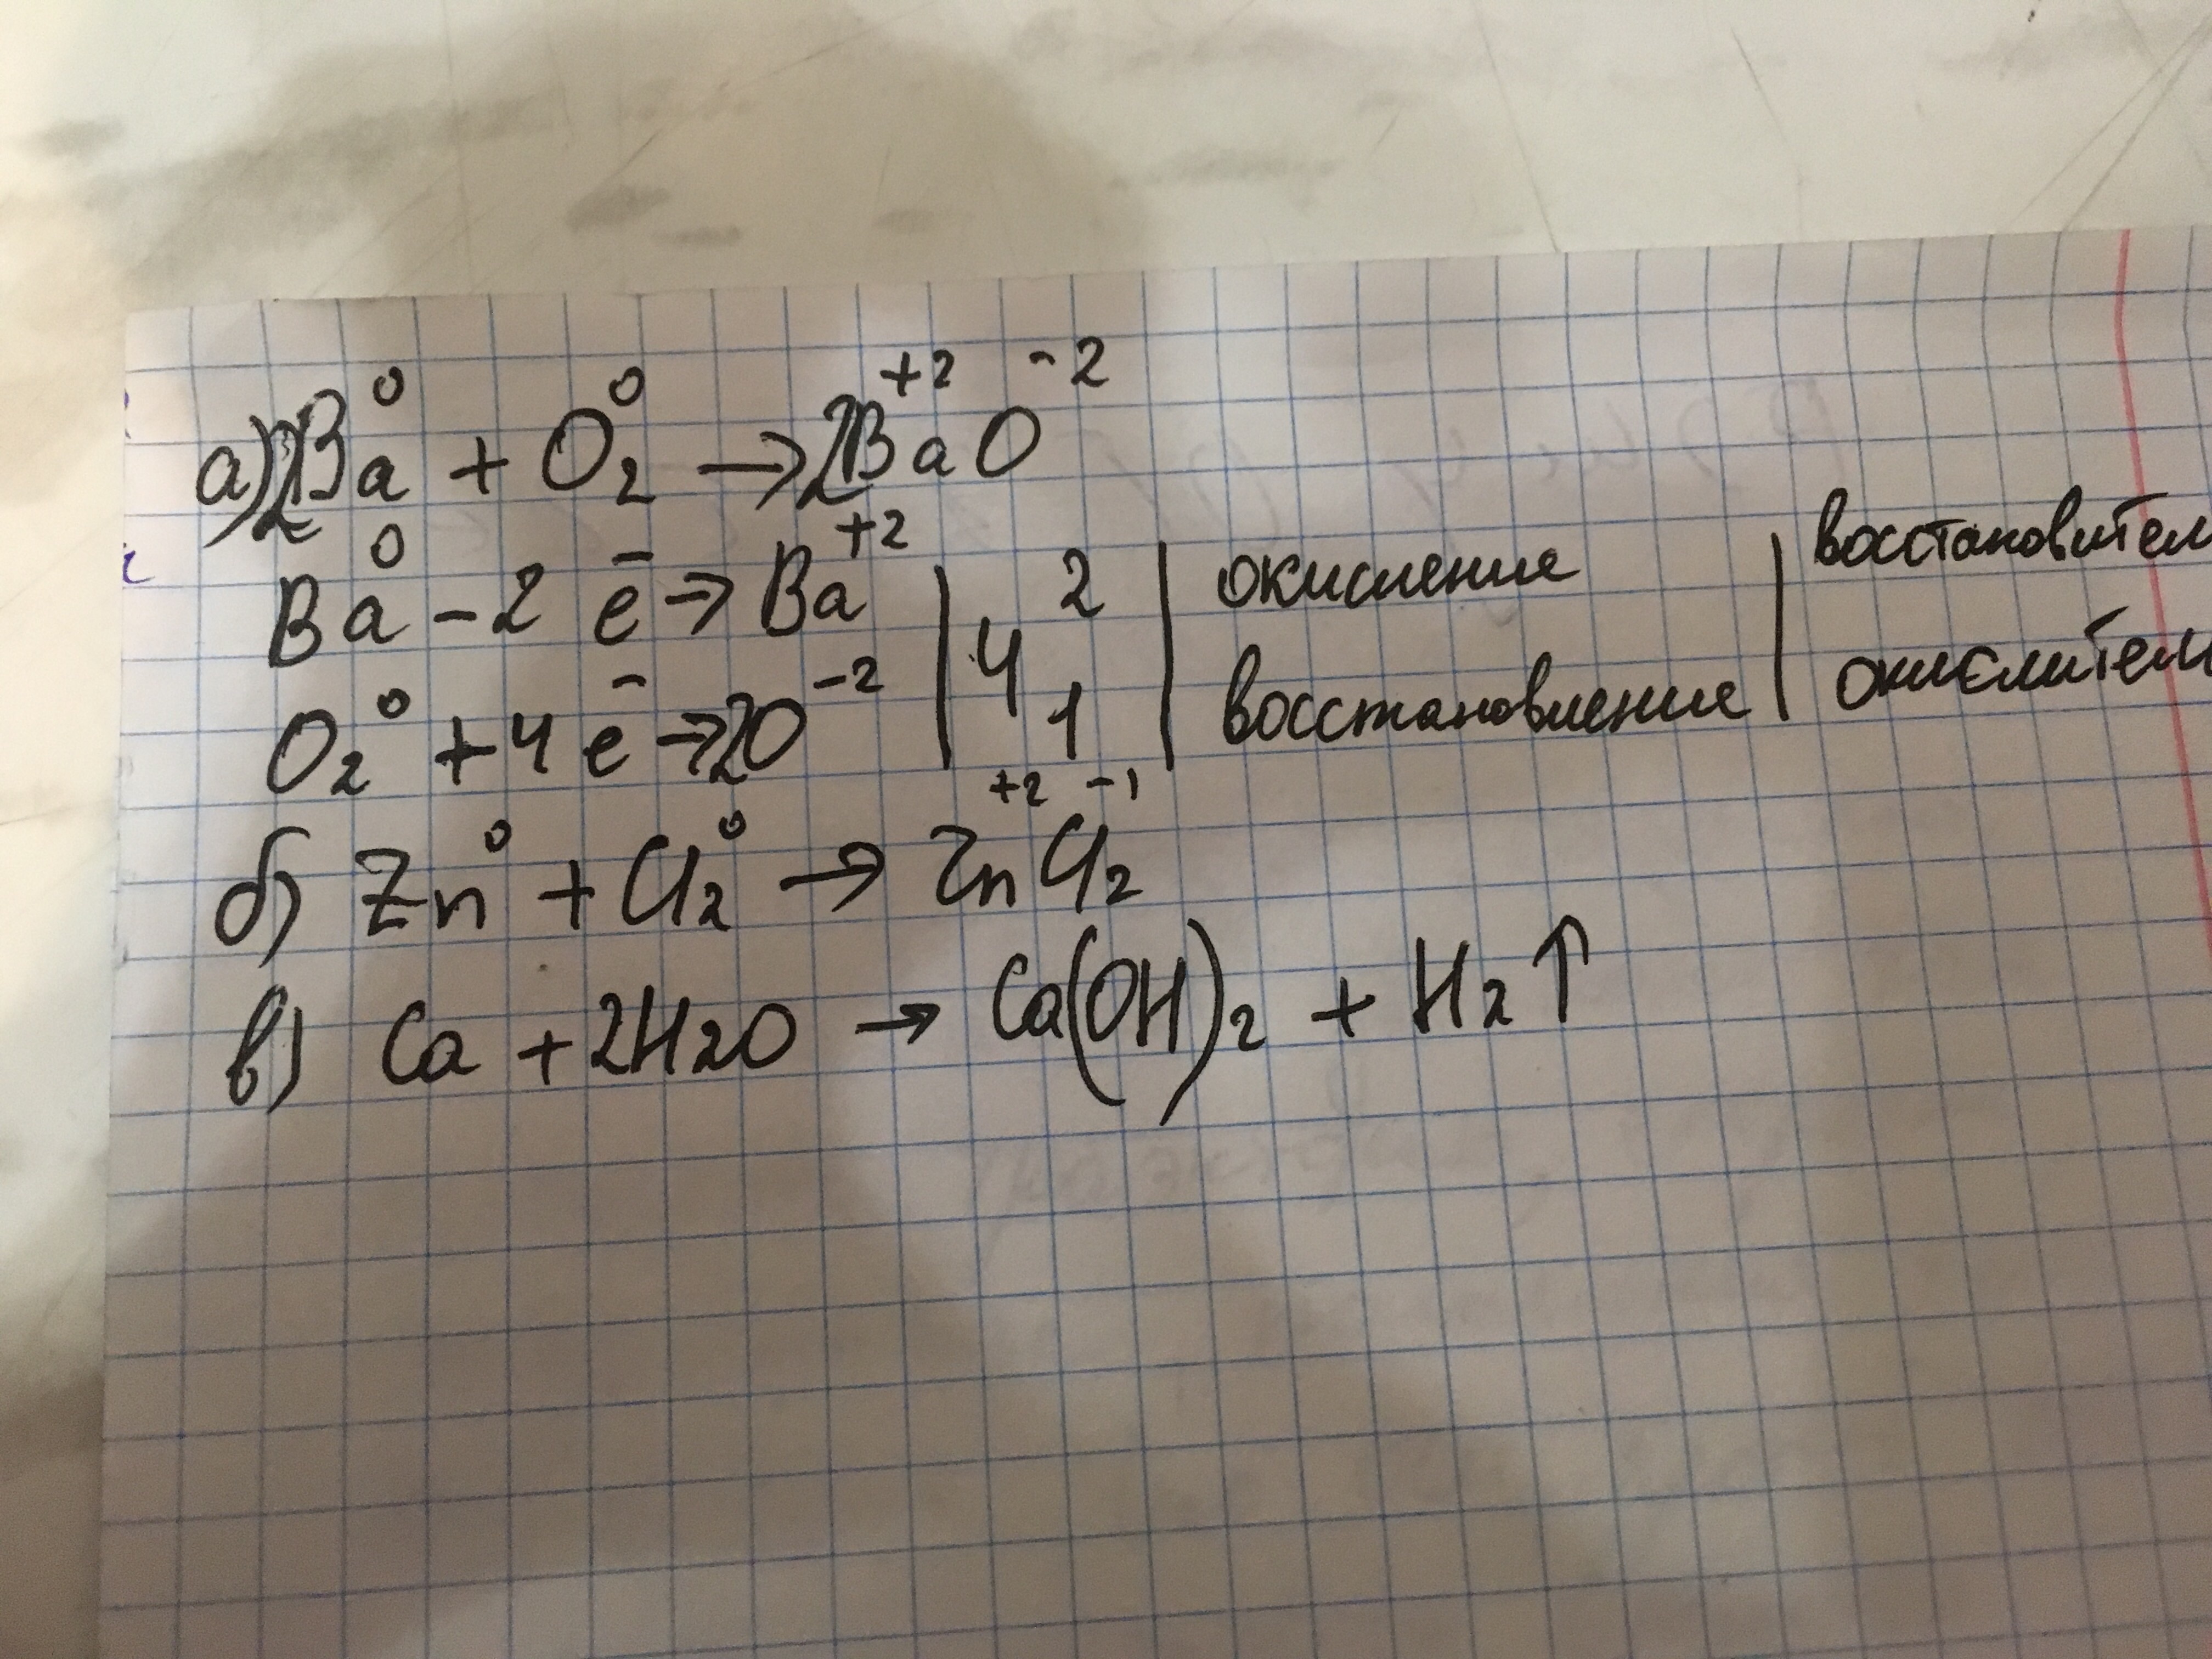 а) 2Ba⁰ + O₂⁰ → 2Ba⁺²O⁻²
Ba⁰ - 2ē → Ba⁺² | 4 2 | окисление | восстановител
O₂⁰ + 4ē → 2O⁻² | 1 | восстановление | окислител
б) Zn⁰ + Cl₂⁰ → Zn⁺²Cl₂⁻¹
в) Ca + 2H₂O → Ca(OH)₂ + H₂↑